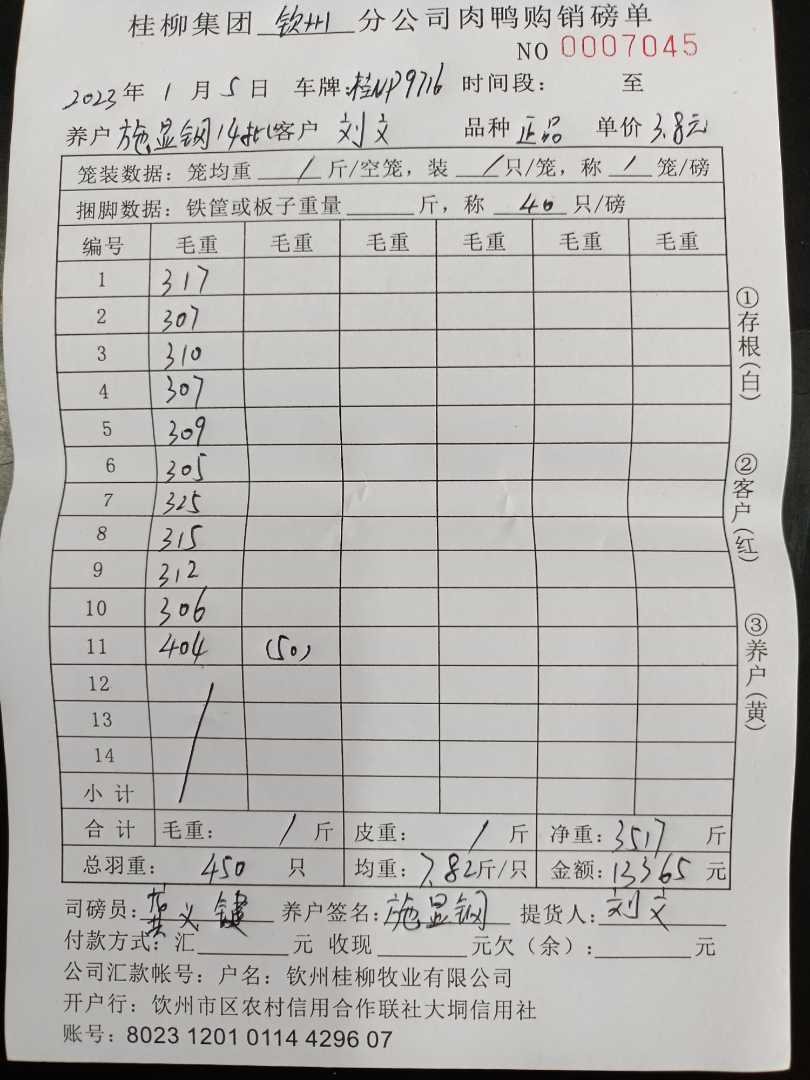 桂柳集团 钦州 分公司肉鸭购销磅单
NO 0007045
2023年 1 月 5 日 车牌:桂NP9716 时间段: 至
养户 施显钢14批 客户 刘文 品种 正品 单价 3.8元
笼装数据: 笼均重 / 斤/空笼, 装 / 只/笼, 称 / 笼/磅
捆脚数据: 铁筐或板子重量 斤, 称 40 只/磅
编号 毛重 毛重 毛重 毛重 毛重 毛重
1 317
2 307
3 310
4 307
5 309
6 305
7 325
8 315
9 312
10 306
11 404 (50)
12
13
14
小计
合计 毛重: / 斤 皮重: / 斤 净重: 3517 斤
总羽重: 450 只 均重: 7.82斤/只 金额: 13365 元
司磅员: 黄义键 养户签名: 施显钢 提货人: 刘文
付款方式: 汇 元 收现 元欠(余): 元
公司汇款帐号: 户名: 钦州桂柳牧业有限公司
开户行: 钦州市区农村信用合作联社大垌信用社
账号: 8023 1201 0114 4296 07
①存根(白)
②客户(红)
③养户(黄)